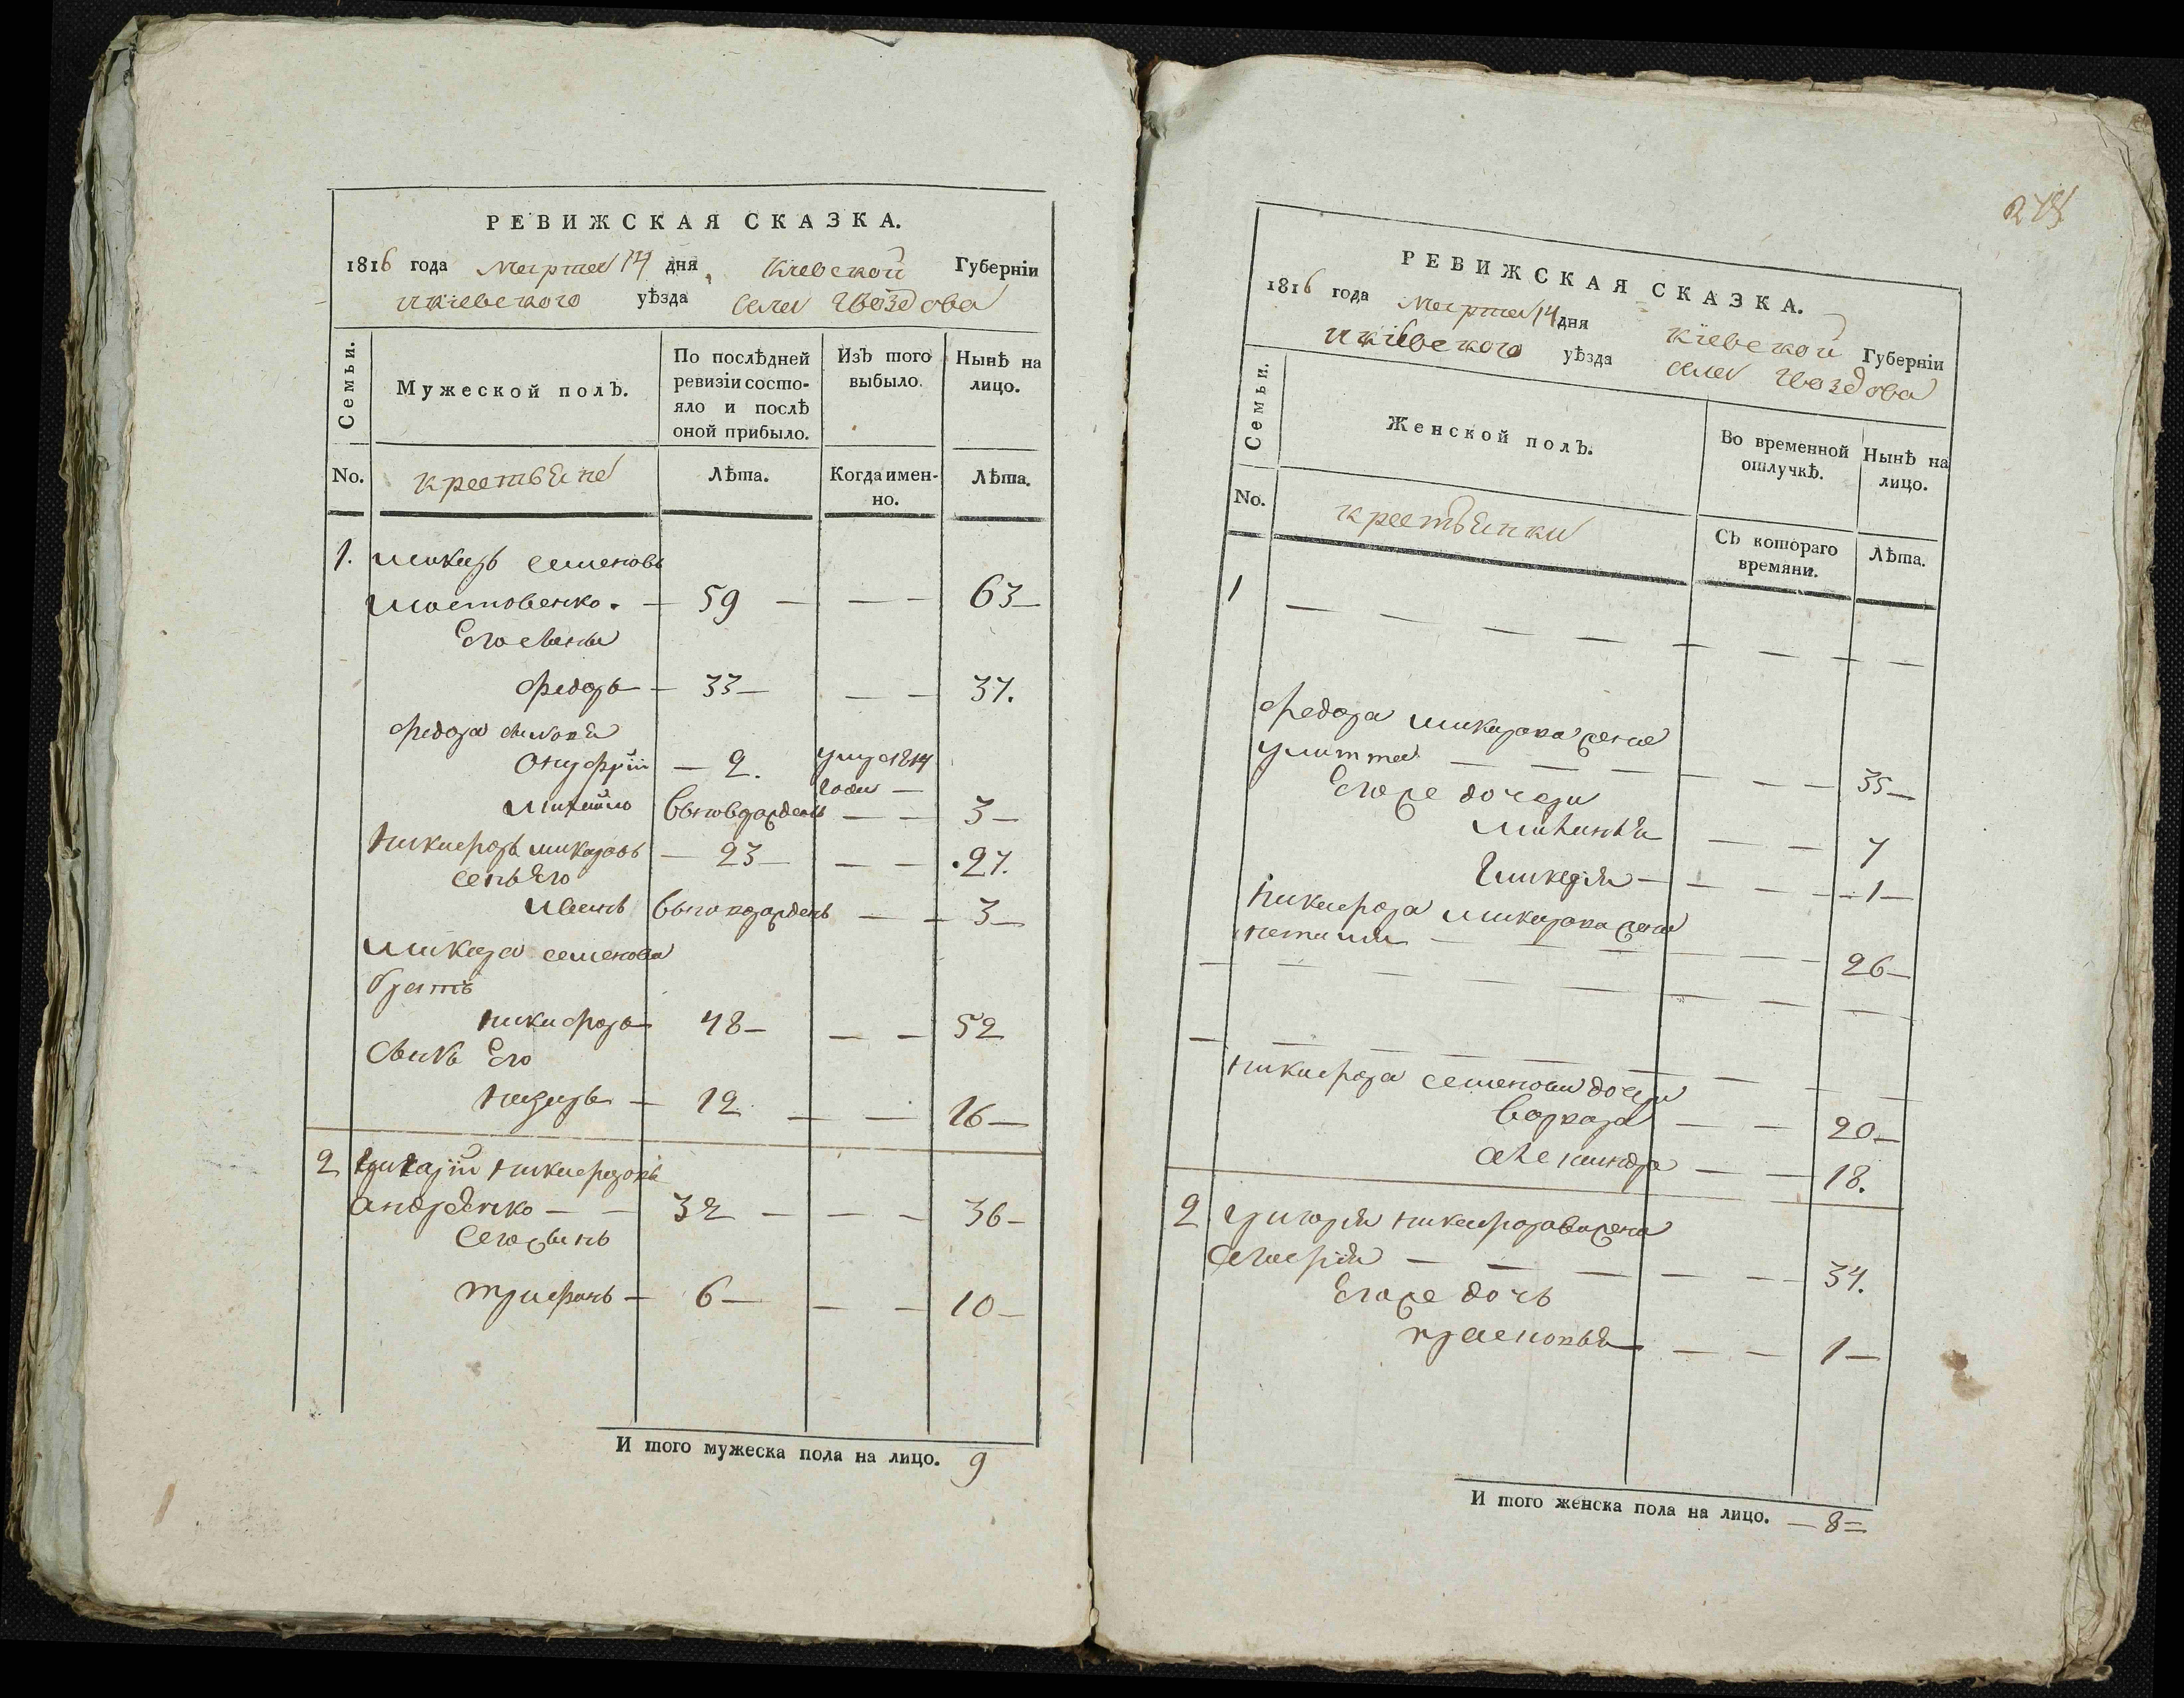 РЕВИЖСКАЯ СКАЗКА.
1816 года Марта 14 дня, Кіевской Губерніи
и кіевского уѣзда села Гвоздова
Семьи.
Мужеской полъ.
По послѣдней
ревизіи состо-
яло и послѣ
оной прибыло.
Изъ того
выбыло.
Нынѣ на
лицо.
No. крестьяне Лѣта. Когда имен-
но. Лѣта.
1. Макаръ семеновъ
мостовенко. — 59 — — — 63 —
Его сыны
Федоръ — 33 — — — 37.
Федора сыновя
Онуфрій — 2. умре 1814
года —
Михайло вновьрожденъ — — 3 —
Никифоръ макаровъ — 23 — — — 27.
сынъ его
Иванъ вновьрожденъ — — 3 —
Макара семенова
братъ
никифоръ 48 — — — 52
Сынъ Его
назаръ — 12 — — 16 —
2 Григорій никифоровъ
андрѣенко — — 32 — — — 36 —
Его сынъ
трифонъ — 6 — — — 10 —
И того мужеска пола на лицо. 9
РЕВИЖСКАЯ СКАЗКА.
1816 года Марта 14 дня Кіевской Губерніи
и кіевского уѣзда села Гвоздова
Семьи.
Женской полъ.
Во временной
отлучкѣ.
Нынѣ на
лицо.
No. крестьянки Съ котораго
времяни. Лѣта.
1 — — — — — — — —
Федора макарова жена
улитта — — — — — — 35 —
Егоже дочери
— — 7
Гликерія — — — — 1 —
никифора макарова жена
наталия — — — — — 26 —
— — — — — — — —
— — — — — — — —
никифора семенова дочери
варвара — — 20 —
александра — — 18.
2 Григорія никифорова жена
Агафія — — — — — 34.
Егоже дочь
прасковья — — 1 —
И того женска пола на лицо. — 8 =